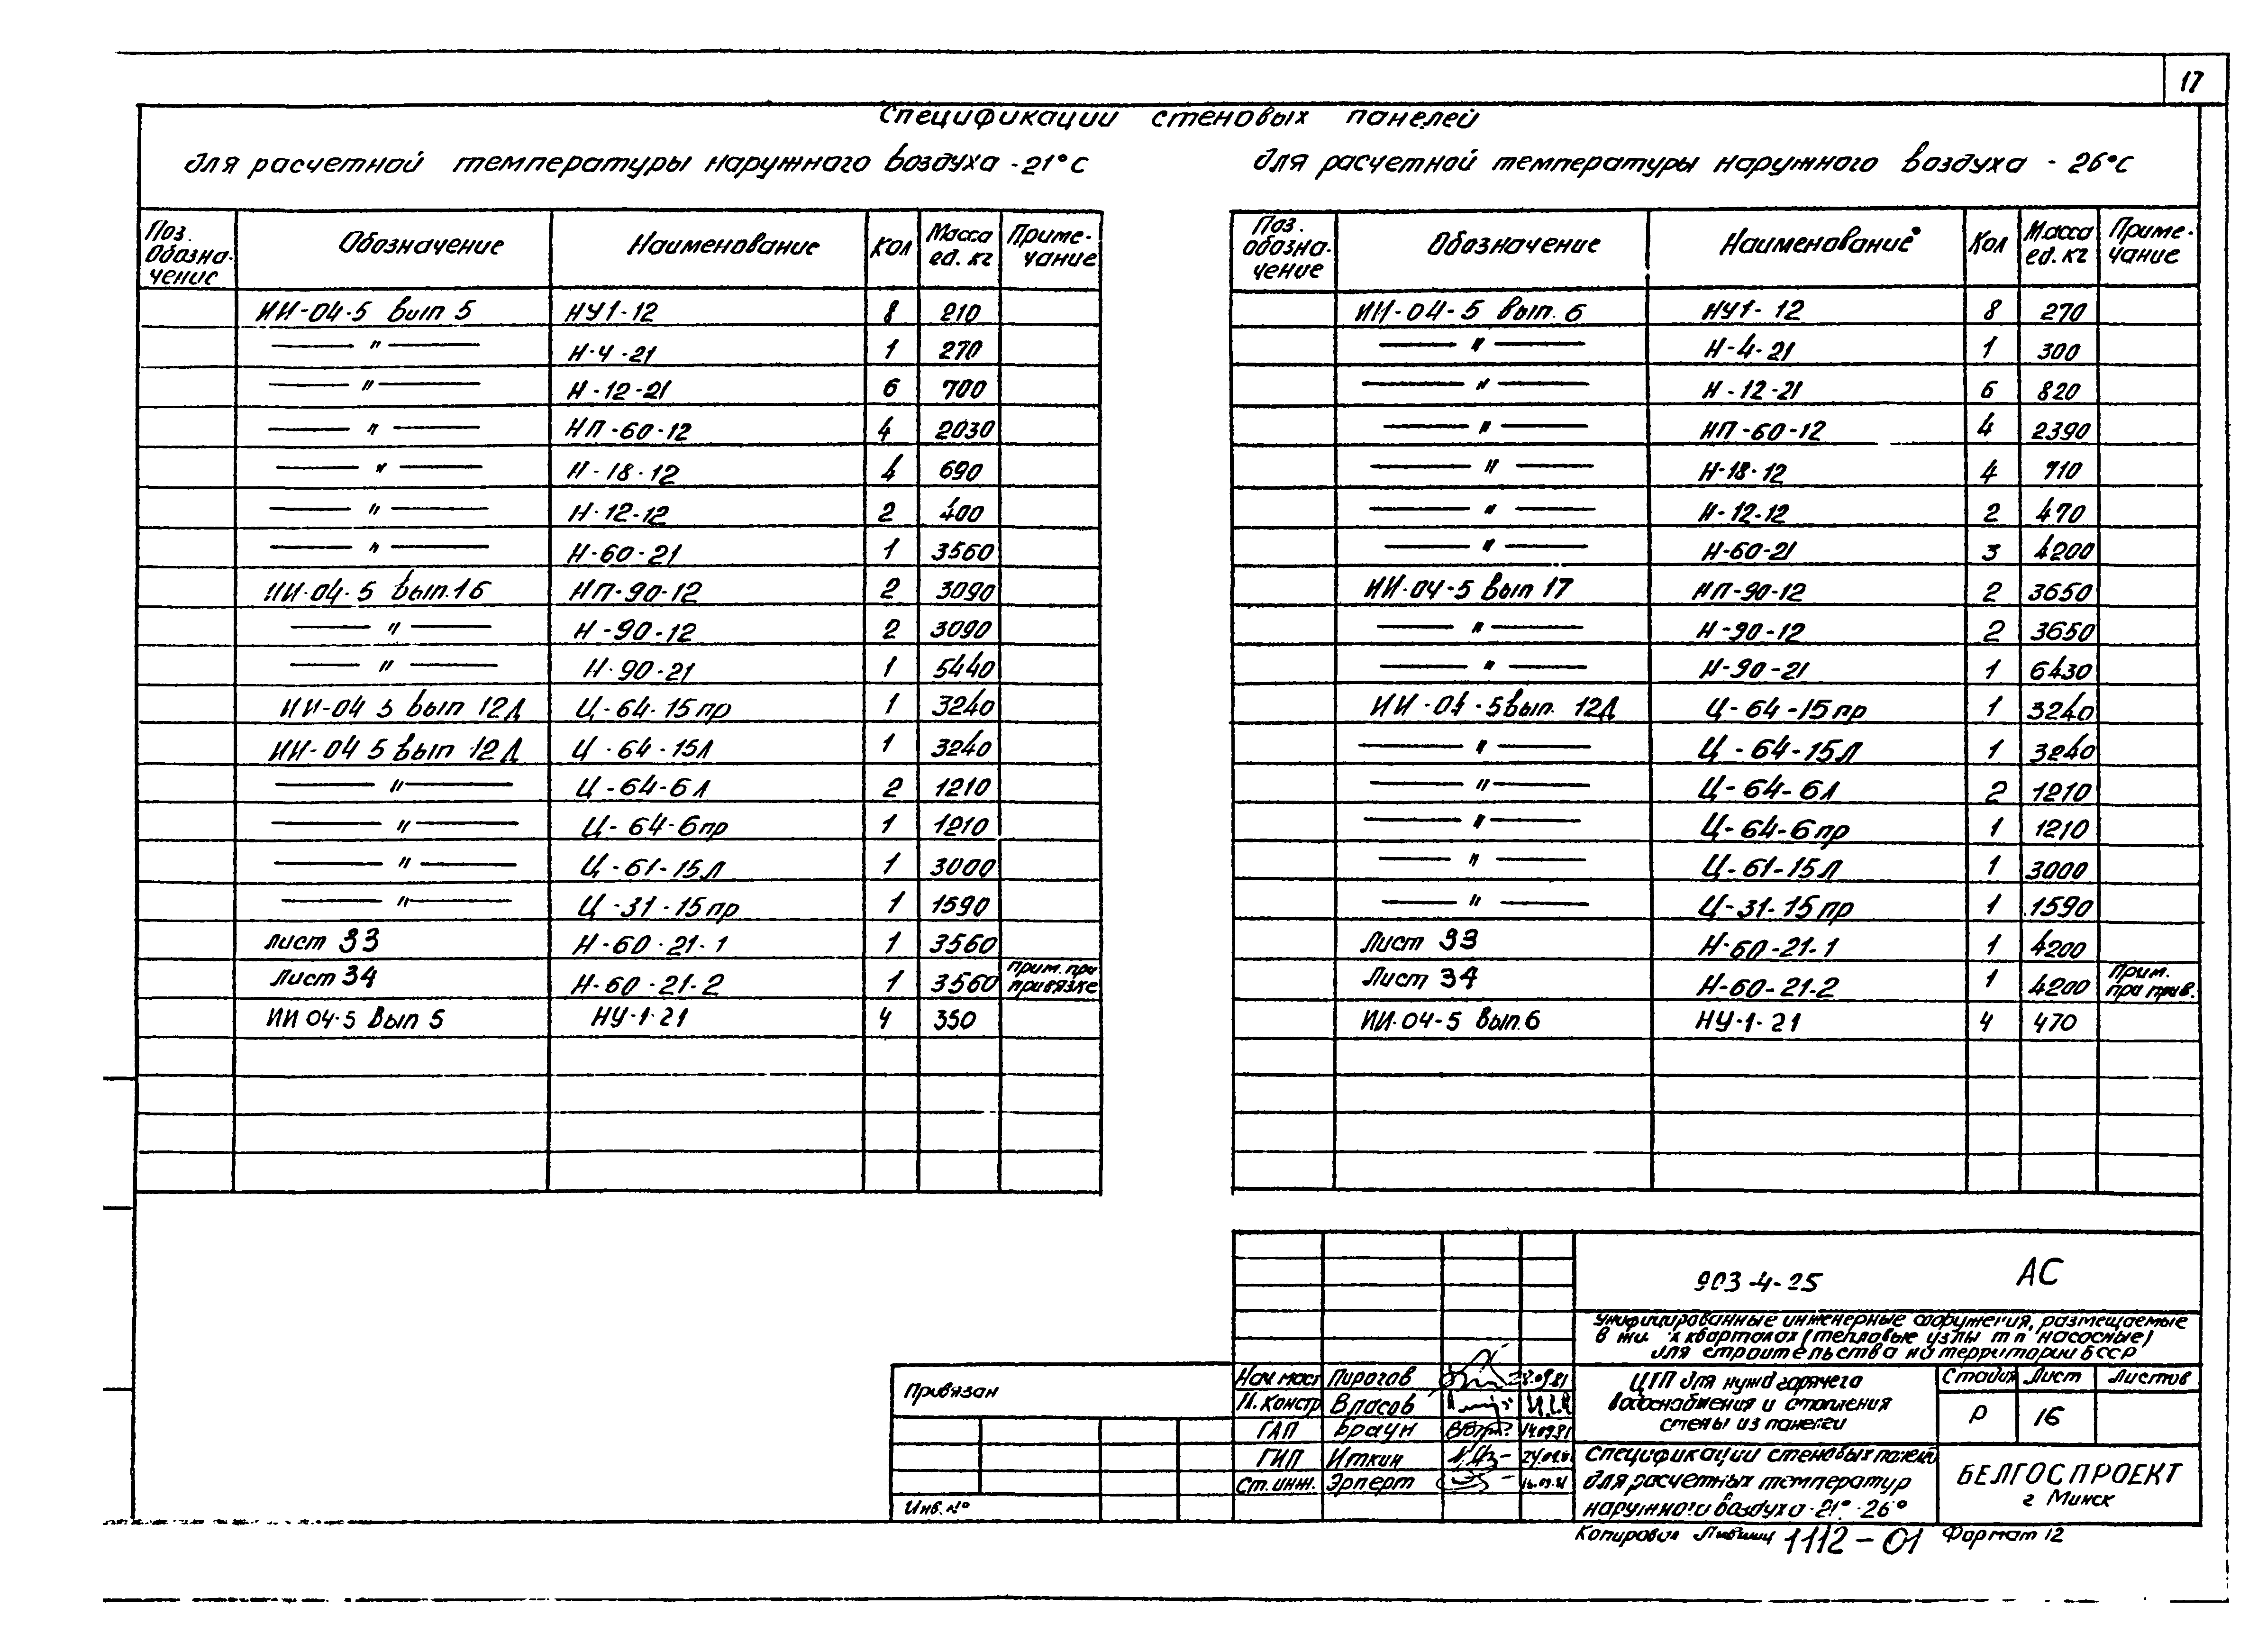 17
Спецификации стеновых панелей
для расчетной температуры наружного воздуха -21°С
Поз. Обозна- чение Обозначение Наименование Кол Масса ед. кг Приме- чание
ИИ-04-5 вып 5 НУ1-12 8 210
— " — Н-4-21 1 270
— " — Н-12-21 6 700
— " — НП-60-12 4 2030
— " — Н-18-12 4 690
— " — Н-12-12 2 400
— " — Н-60-21 1 3560
ИИ-04-5 вып.16 НП-90-12 2 3090
— " — Н-90-12 2 3090
— " — Н-90-21 1 5440
ИИ-04 5 вып 12Д Ц-64-15пр 1 3240
ИИ-04 5 вып 12Д Ц-64-15Л 1 3240
— " — Ц-64-6Л 2 1210
— " — Ц-64-6пр 1 1210
— " — Ц-61-15Л 1 3000
— " — Ц-31-15пр 1 1590
Лист 33 Н-60-21-1 1 3560
Лист 34 Н-60-21-2 1 3560 прим. при привязке
ИИ 04-5 Вып 5 НУ-1-21 4 350
для расчетной температуры наружного воздуха -26°С
Поз. обозна- чение Обозначение Наименование Кол Масса ед. кг Приме- чание
ИИ-04-5 вып. 6 НУ1-12 8 270
— " — Н-4-21 1 300
— " — Н-12-21 6 820
— " — НП-60-12 4 2390
— " — Н-18-12 4 710
— " — Н-12-12 2 470
— " — Н-60-21 3 4200
ИИ-04-5 вып 17 НП-90-12 2 3650
— " — Н-90-12 2 3650
— " — Н-90-21 1 6430
ИИ-04-5вып. 12Д Ц-64-15пр 1 3240
— " — Ц-64-15Л 1 3240
— " — Ц-64-6Л 2 1210
— " — Ц-64-6пр 1 1210
— " — Ц-61-15Л 1 3000
— " — Ц-31-15пр 1 1590
Лист 33 Н-60-21-1 1 4200
Лист 34 Н-60-21-2 1 4200 Прим. при прив.
ИИ-04-5 Вып.6 НУ-1-21 4 470
903-4-25 АС
Унифицированные инженерные сооружения, размещаемые
в х кварталах (тепловые узлы тп насосные)
для строительства на территории БССР
Привязан
Инв.№
Нач маст Пирогов
Н.констр Власов
ГАП Браун 14.09.81
ГИП Иткин
Ст.инж. Эрперт
ЦТП для нужд горячего
водоснабжения и отопления
стены из панелей
Стадия Лист Листов
Р 16
Спецификации стеновых панелей
для расчетных температур
наружного воздуха -21° -26°
БЕЛГОСПРОЕКТ
г Минск
Копировал 1112-01 Формат 12